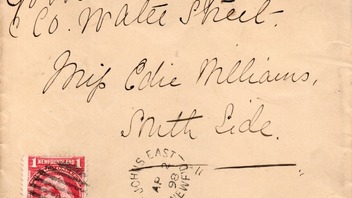 & Co. Water Street.
Miss Edie Williams,
South Side.
1 NEWFOUNDLAND 1
JOHNS EAST
AP 2
98
NEWF'D